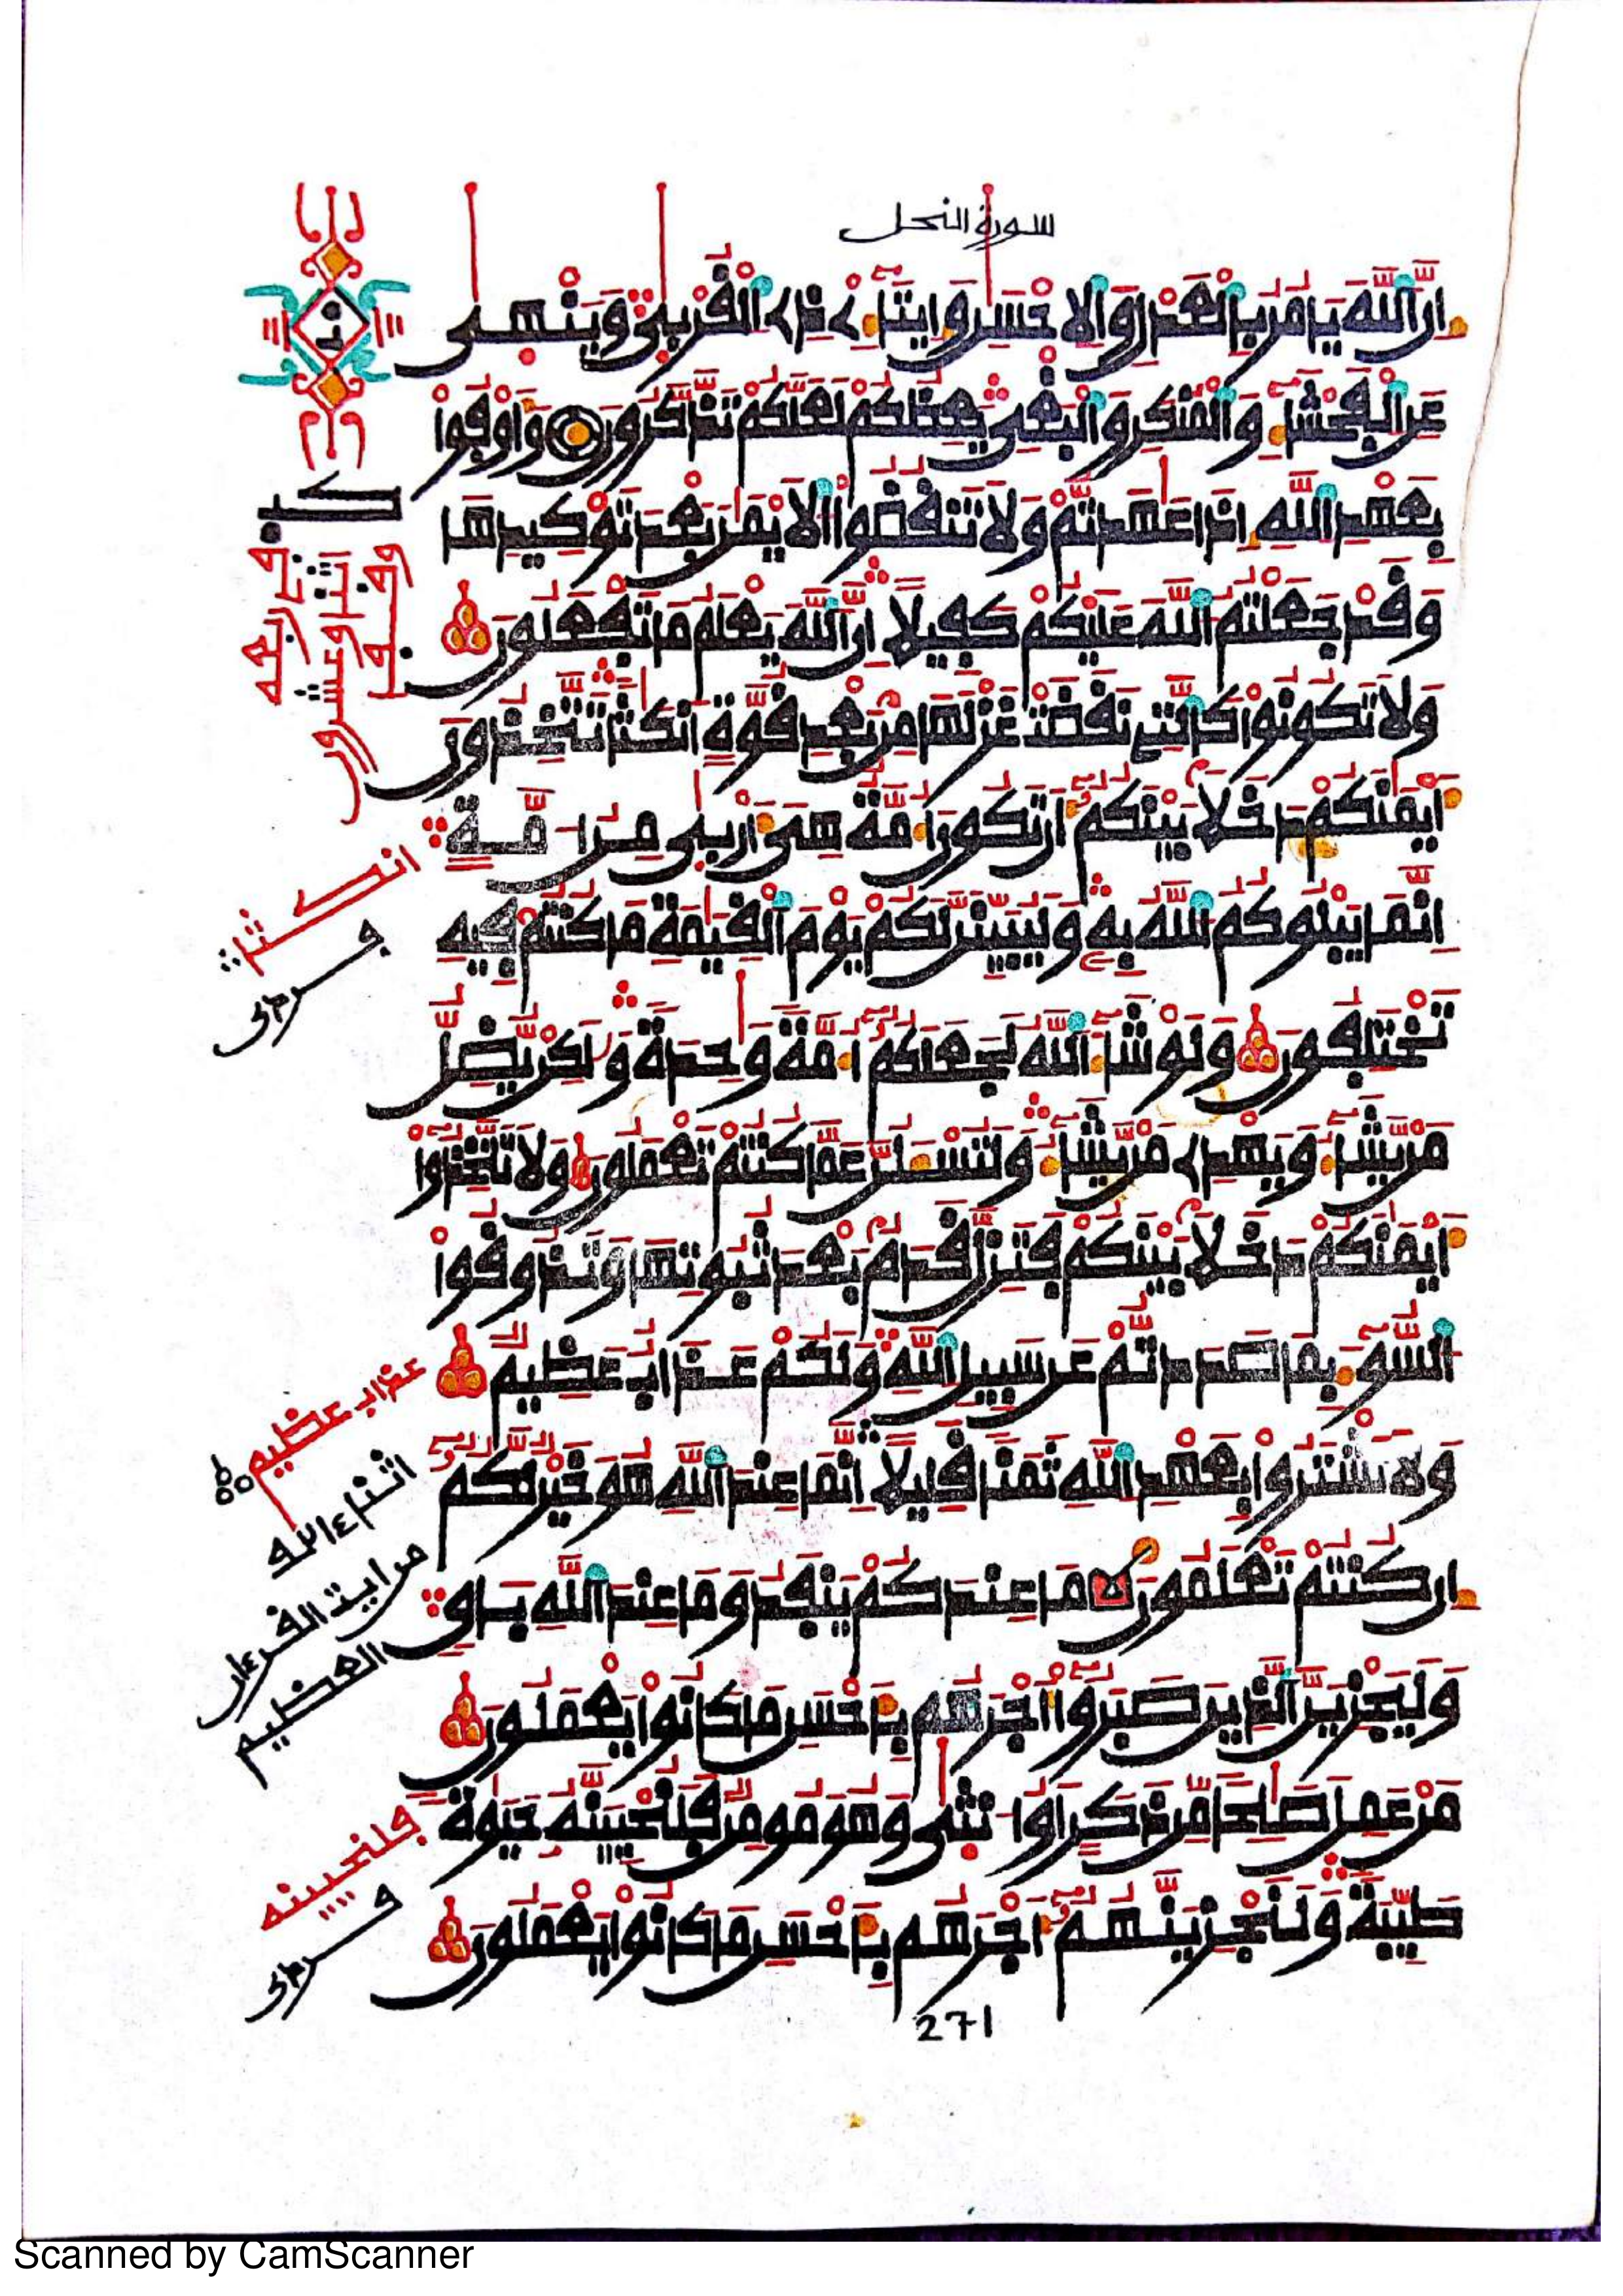 سورة النحل
اِنَّ اَللَّهَ يَامُرُ بِالْعَدْلِ وَالِاحْسَٰنِ وَإِيتَآءِ ے ذِے اِلْقُرْبٰي وَيَنْهٰي
عَنِ اِلْفَحْشَآءِ وَالْمُنكَرِ وَالْبَغْيِ يَعِظُكُمْ لَعَلَّكُمْ تَذَّكَّرُونَ وَأَوْفُواْ
بِعَهْدِ اِللَّهِ إِذَا عَٰهَدتُّمْ وَلَا تَنقُضُواْ اُلَايْمَٰنَ بَعْدَ تَوْكِيدِهَا
وَقَدْ جَعَلْتُمُ اُللَّهَ عَلَيْكُمْ كَفِيلًا اِنَّ اَللَّهَ يَعْلَمُ مَا تَفْعَلُونَ
وَلَا تَكُونُواْ كَالتِے نَقَضَتْ غَزْلَهَا مِنۢ بَعْدِ قُوَّةٍ اَنكَٰثًا تَتَّخِذُونَ
أَيْمَٰنَكُمْ دَخَلًا بَيْنَكُمُۥ أَن تَكُونَ أُمَّةٌ هِيَ أَرْبٰي مِنُ ا مَّةٍ
اِنَّمَا يَبْلُوكُمُ اُللَّهُ بِهِۦ وَلَيُبَيِّنَنَّ لَكُمْ يَوْمَ اَلْقِيَٰمَةِ مَا كُنتُمْ فِيهِ
تَخْتَلِفُونَ وَلَوْ شَآءَ اَللَّهُ لَجَعَلَكُمُۥ أُمَّةً وَٰحِدَةً وَلَٰكِنْ يُّضِلُّ
مَنْ يَّشَآءُ وَيَهْدِے مَنْ يَّشَآءُ وَلَتُسْـَٔلُنَّ عَمَّا كُنتُمْ تَعْمَلُونَ وَلَا تَتَّخِذُوٓاْ
أَيْمَٰنَكُمْ دَخَلًا بَيْنَكُمْ فَتَزِلَّ قَدَمٌ بَعْدَ ثُبُوتِهَا وَتَذُوقُواْ
اُلسُّوٓءَ بِمَا صَدَدتُّمْ عَن سَبِيلِ اِللَّهِ وَلَكُمْ عَذَابٌ عَظِيمٌ
وَلَا تَشْتَرُواْ بِعَهْدِ اِللَّهِ ثَمَنًا قَلِيلًا اِنَّمَا عِندَ اَللَّهِ هُوَ خَيْرٌ لَّكُمُۥ
إِن كُنتُمْ تَعْلَمُونَ مَا عِندَكُمْ يَنفَدُ وَمَا عِندَ اَللَّهِ بَاقٍ
وَلَيَجْزِيَنَّ اَلذِينَ صَبَرُوٓاْ أَجْرَهُم بِأَحْسَنِ مَا كَانُواْ يَعْمَلُونَ
مَنْ عَمِلَ صَٰلِحًا مِّن ذَكَرٍ اَوُ ا نثٰي وَهُوَ مُومِنٌ فَلَنُحْيِيَنَّهُۥ حَيَوٰةً
طَيِّبَةً وَلَنَجْزِيَنَّهُمُۥ أَجْرَهُم بِأَحْسَنِ مَا كَانُواْ يَعْمَلُونَ
انكثا
عذاب عظيم
من ايت القرءان
العظيم
فلنحيينه
271
Scanned by CamScanner